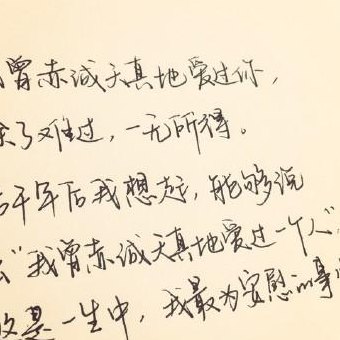 曾赤诚天真地爱过你，
了难过，一无所得。
千年后我想起，能够说
“我曾赤诚天真地爱过一个人”
是一生中，我最为安慰的事